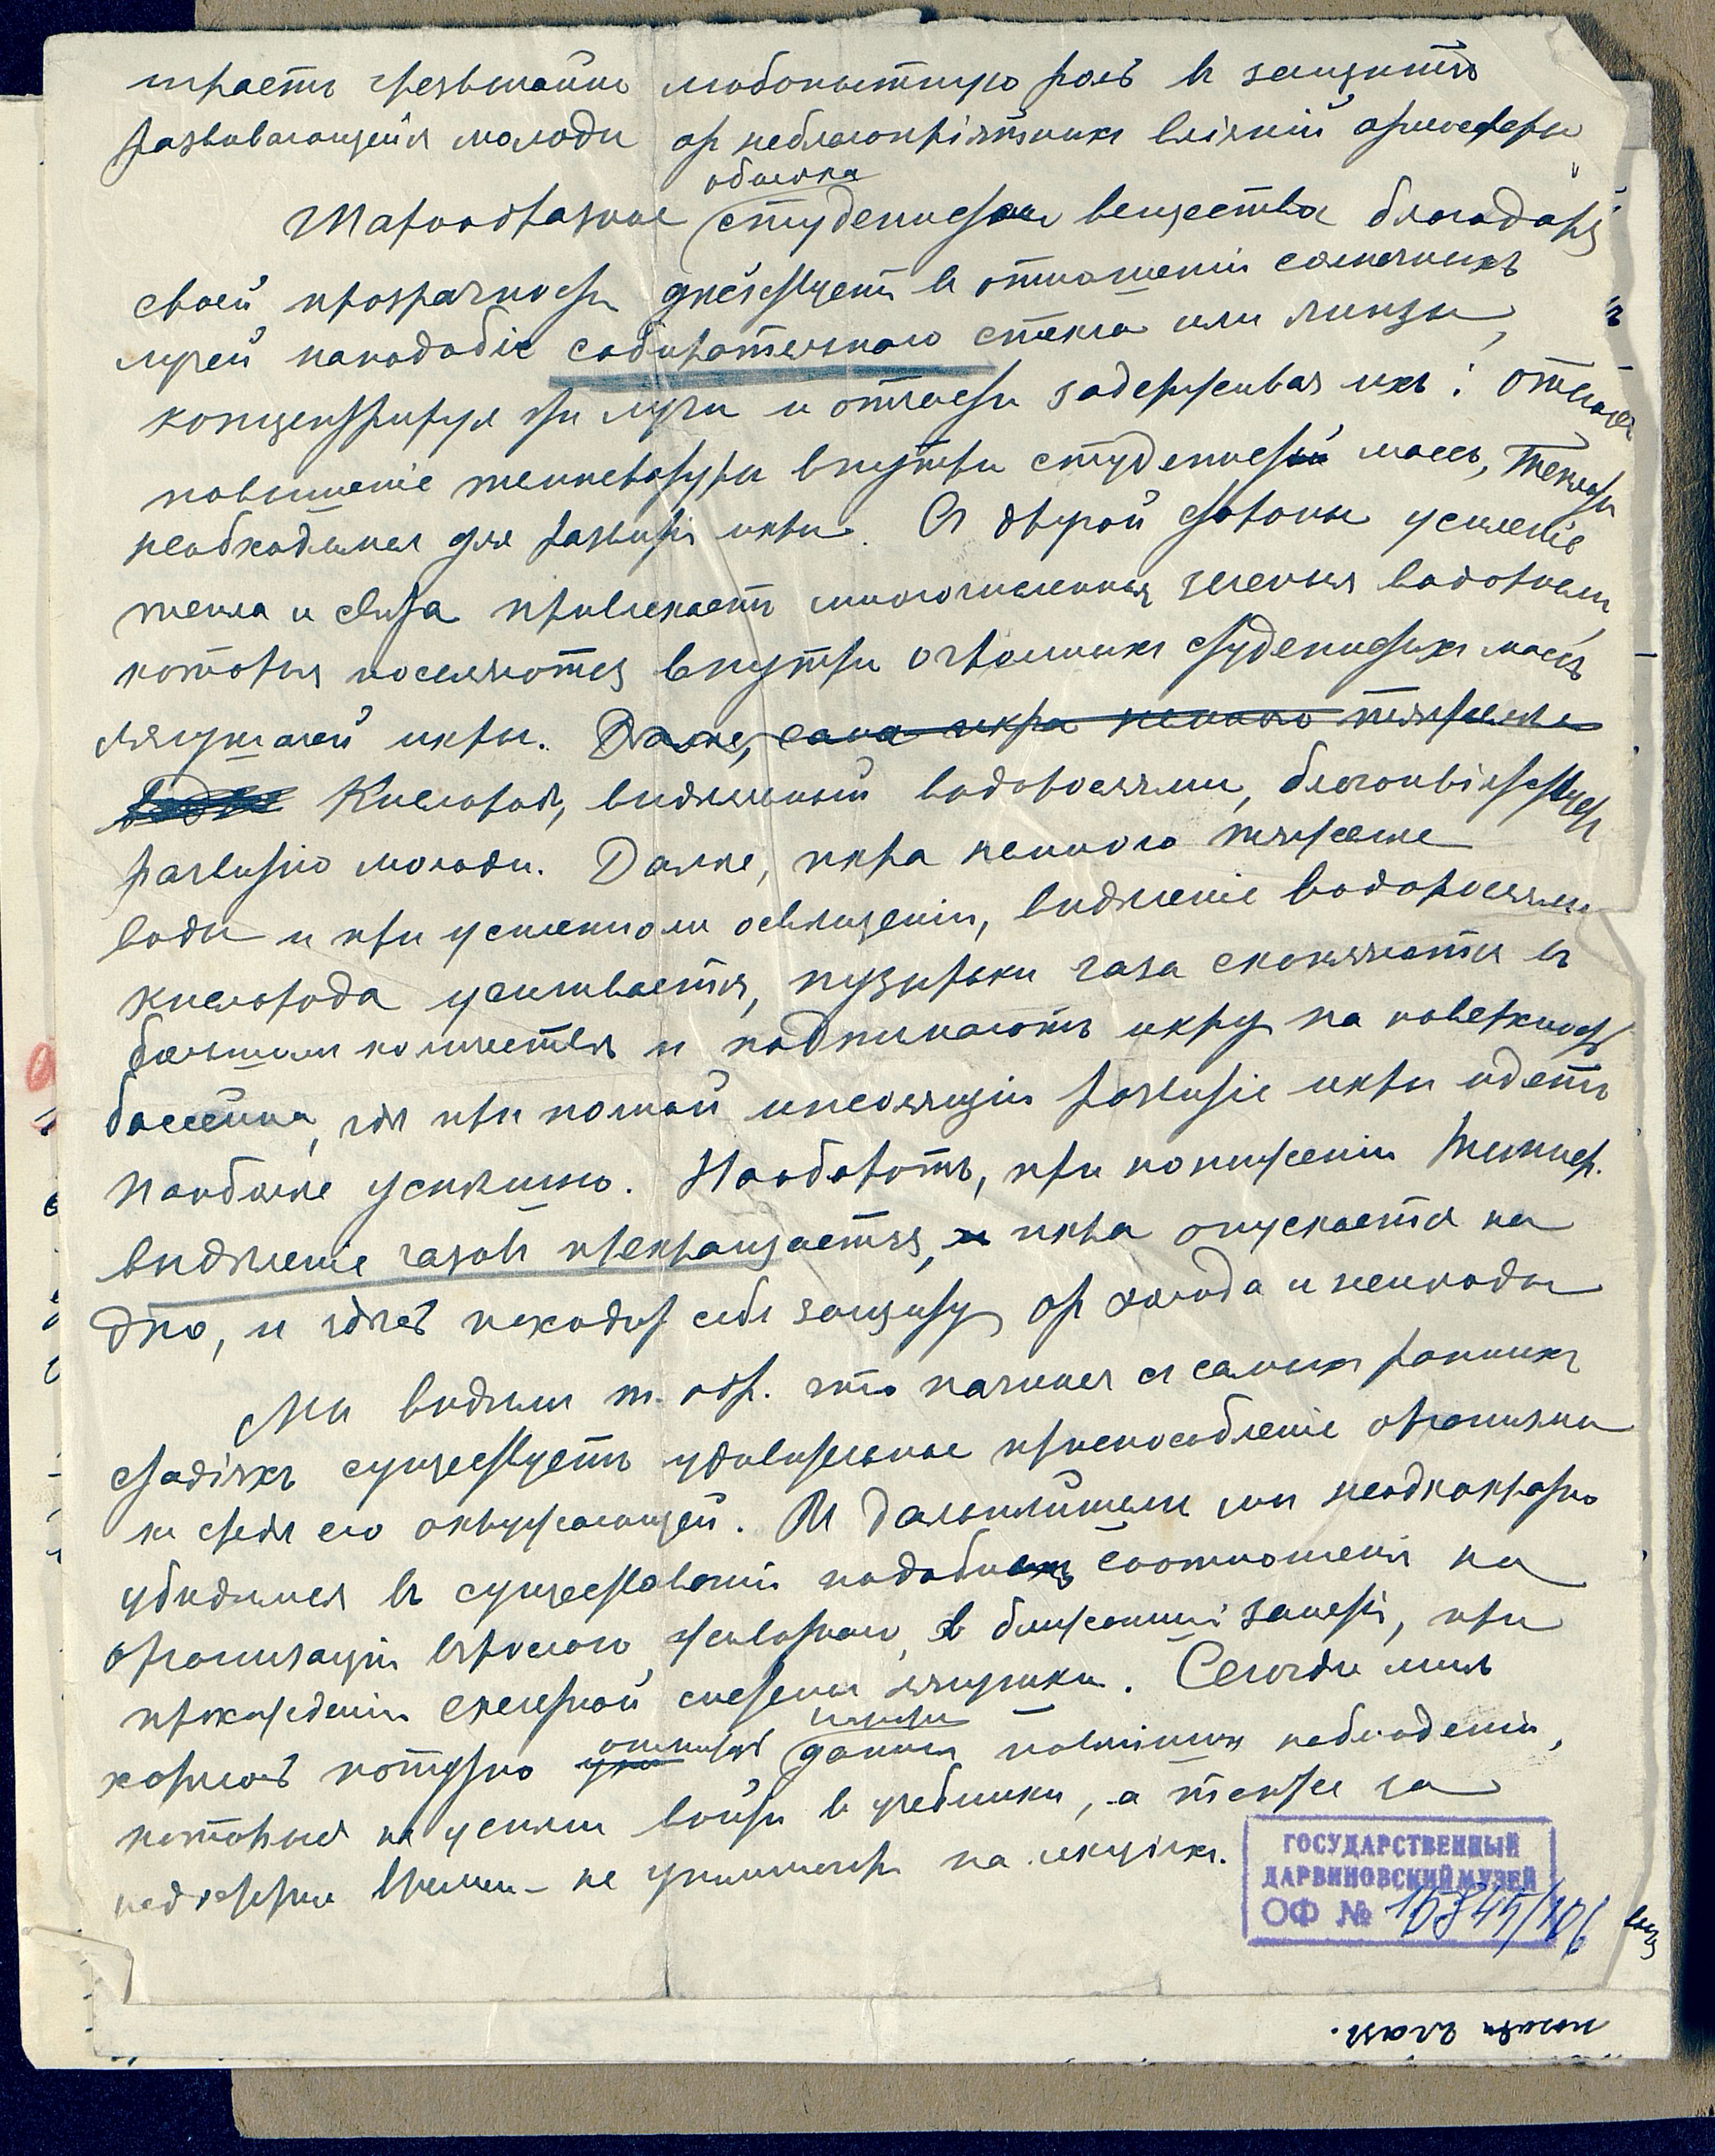 играетъ чрезвычайно любопытную роль въ защитѣ
развивающейся молоди от неблагопріятныхъ вліяній атмосферы
оболочка
Шарообразная студенистаго вещества благодаря
своей прозрачности дѣйствуетъ в отношеніи солнечныхъ
лучей наподобіе собирательнаго стекла или линзы,
концентрируя эти лучи и отчасти задерживая ихъ: отсюда
повышеніе температуры внутри студенистой массы, теплоты
необходимой для развитія икры. Съ другой стороны усиленіе
тепла и свѣта привлекаетъ многочисленныя зеленыя водоросли,
которыя поселяются внутри огромныхъ студенистыхъ массъ
лягушачей икры. Далѣе, сама икра немного тяжелѣе
воды Кислородъ, выдѣляемый водорослями, благопріятствуетъ
развитію молоди. Далѣе, икра немного тяжелѣе
воды и при усиленном освѣщеніи, выдѣленіе водорослями
кислорода усиливается, пузырьки газа скопляются въ
большом количествѣ и поднимаютъ икру на поверхность
бассейна, гдѣ при полной инсоляціи развитіе икры идетъ
наиболѣе успѣшно. Наоборотъ, при пониженіи темпер.
выдѣленіе газовъ прекращается, и икра опускается на
дно, и здѣсь находит себѣ защиту от холода и непогоды
Мы видимъ т. обр. что начиная съ самыхъ раннихъ
стадіяхъ существуетъ удивительное приспособленіе организма
къ средѣ его окружающей. Въ дальнѣйшемъ мы неоднократно
убѣдимся въ существованіи подобныхъ соотношенія на
организаціи взрослаго животнаго, в ближайшій занятіи, при
прохожденіи скелетной системы лягушки. Сегодня мнѣ
хотѣлось
данныя новѣйшихъ наблюденій,
которыя не успѣли войти в учебники, а также за
недостаткомъ времени не упоминаются на лекціяхъ.
ГОСУДАРСТВЕННЫЙ
ДАРВИНОВСКИЙ МУЗЕЙ
ОФ № 15845/106